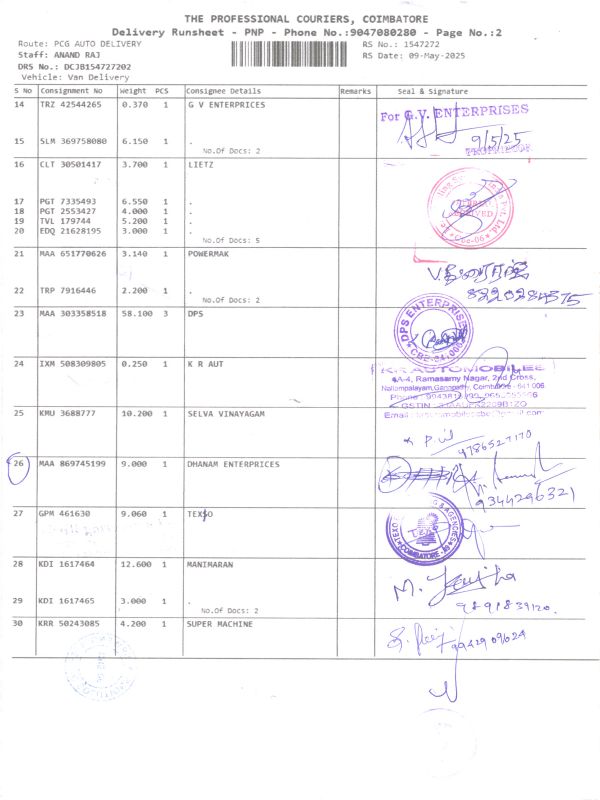 THE PROFESSIONAL COURIERS, COIMBATORE
Delivery Runsheet - PNP - Phone No.:9047080280 - Page No.:2
Route: PCG AUTO DELIVERY
Staff: ANAND RAJ
DRS No.: DCJB154727202
Vehicle: Van Delivery
RS No.: 1547272
RS Date: 09-May-2025
S No Consignment No Weight PCS Consignee Details Remarks Seal & Signature
14 TRZ 42544265 0.370 1 G V ENTERPRICES
For G.V. ENTERPRISES
9/5/25
15 SLM 369758080 6.150 1 .
No.Of Docs: 2
16 CLT 30501417 3.700 1 LIETZ
17 PGT 7335493 6.550 1 .
18 PGT 2553427 4.000 1 .
19 TVL 179744 5.200 1 .
20 EDQ 21628195 3.000 1 .
No.Of Docs: 5
21 MAA 651770626 3.140 1 POWERMAK
22 TRP 7916446 2.200 1 .
No.Of Docs: 2
23 MAA 303358518 58.100 3 DPS
DPS ENTERPRISES
24 IXM 508309805 0.250 1 K R AUT
K.R AUTOMOBILES
4A-4, Ramasamy Nagar, 2nd Cross,
25 KMU 3688777 10.200 1 SELVA VINAYAGAM
4786527170
26 MAA 869745199 9.000 1 DHANAM ENTERPRICES
9344296321
27 GPM 461630 9.060 1 TEXSO
& AGENCIES
COIMBATORE
28 KDI 1617464 12.600 1 MANIMARAN
29 KDI 1617465 3.000 1 .
No.Of Docs: 2
30 KRR 50243085 4.200 1 SUPER MACHINE
9942909624